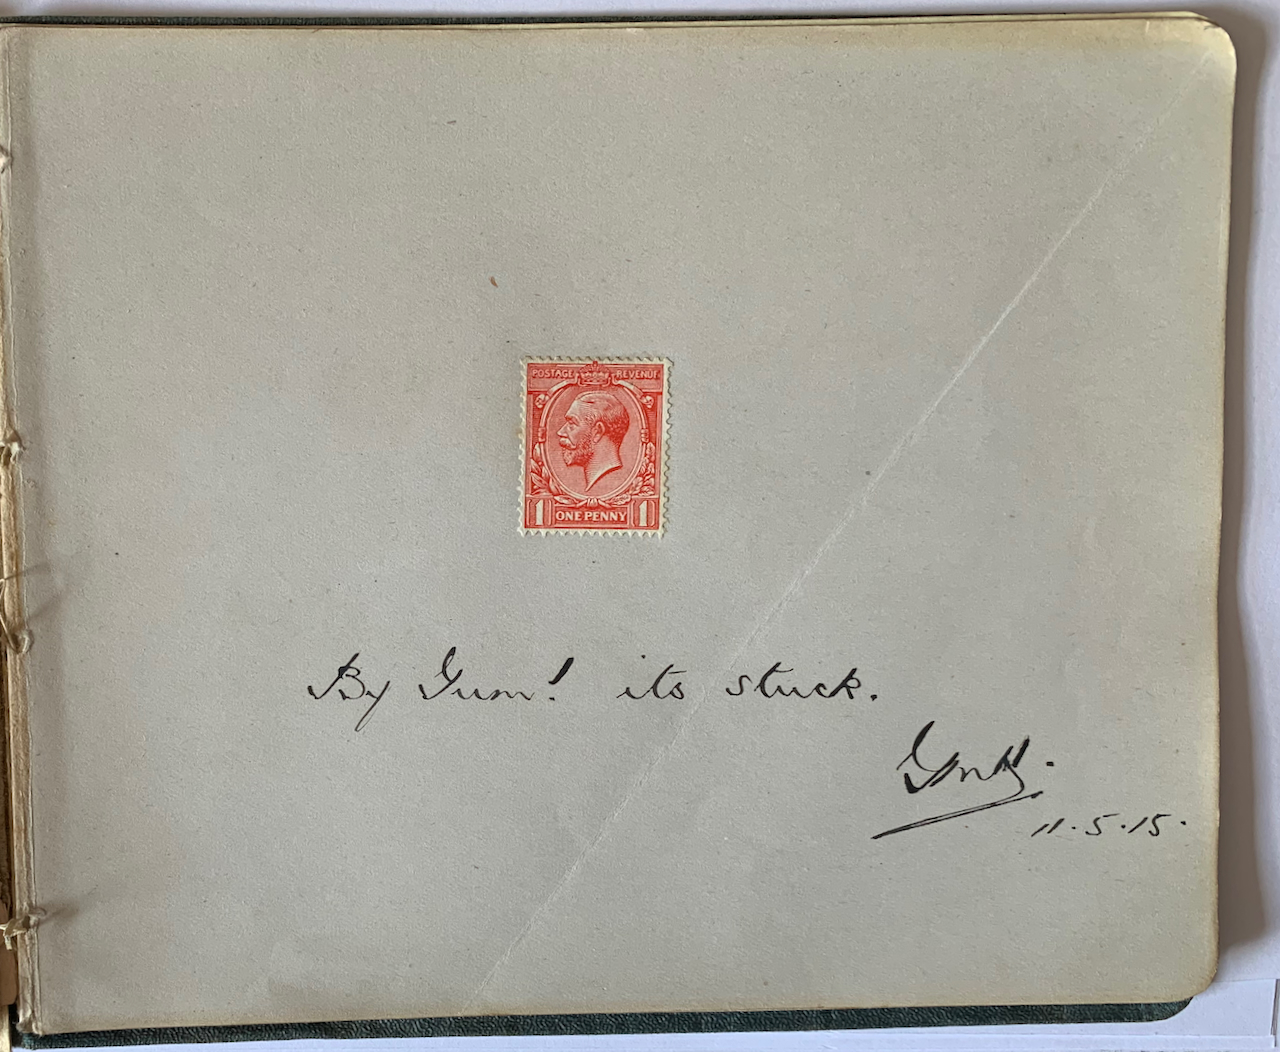 POSTAGE REVENUE
1 ONE PENNY 1
By Gum! its stuck.
11.5.15.